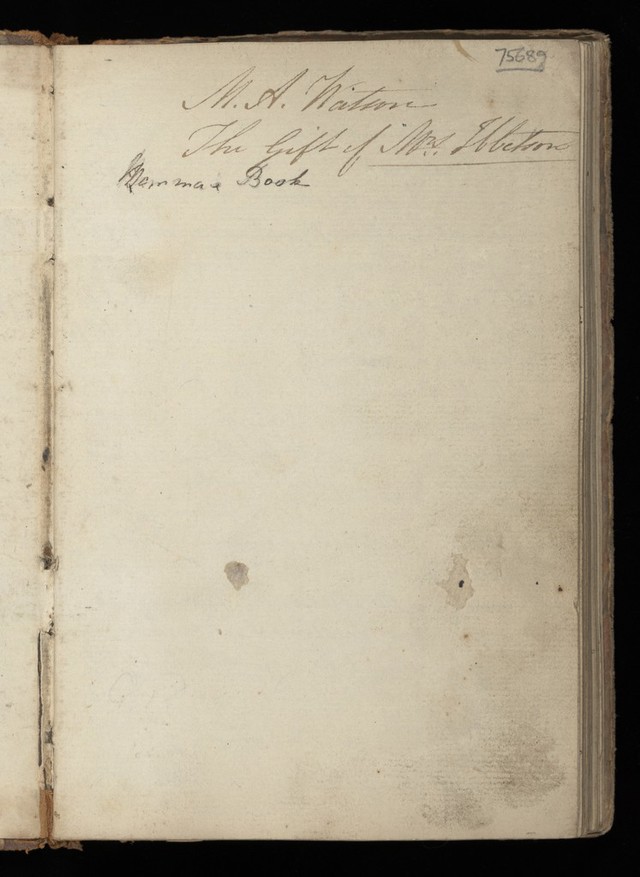 75689
M. A. Watson
The Gift of Mrs. Ibbetson
Mamma's Book